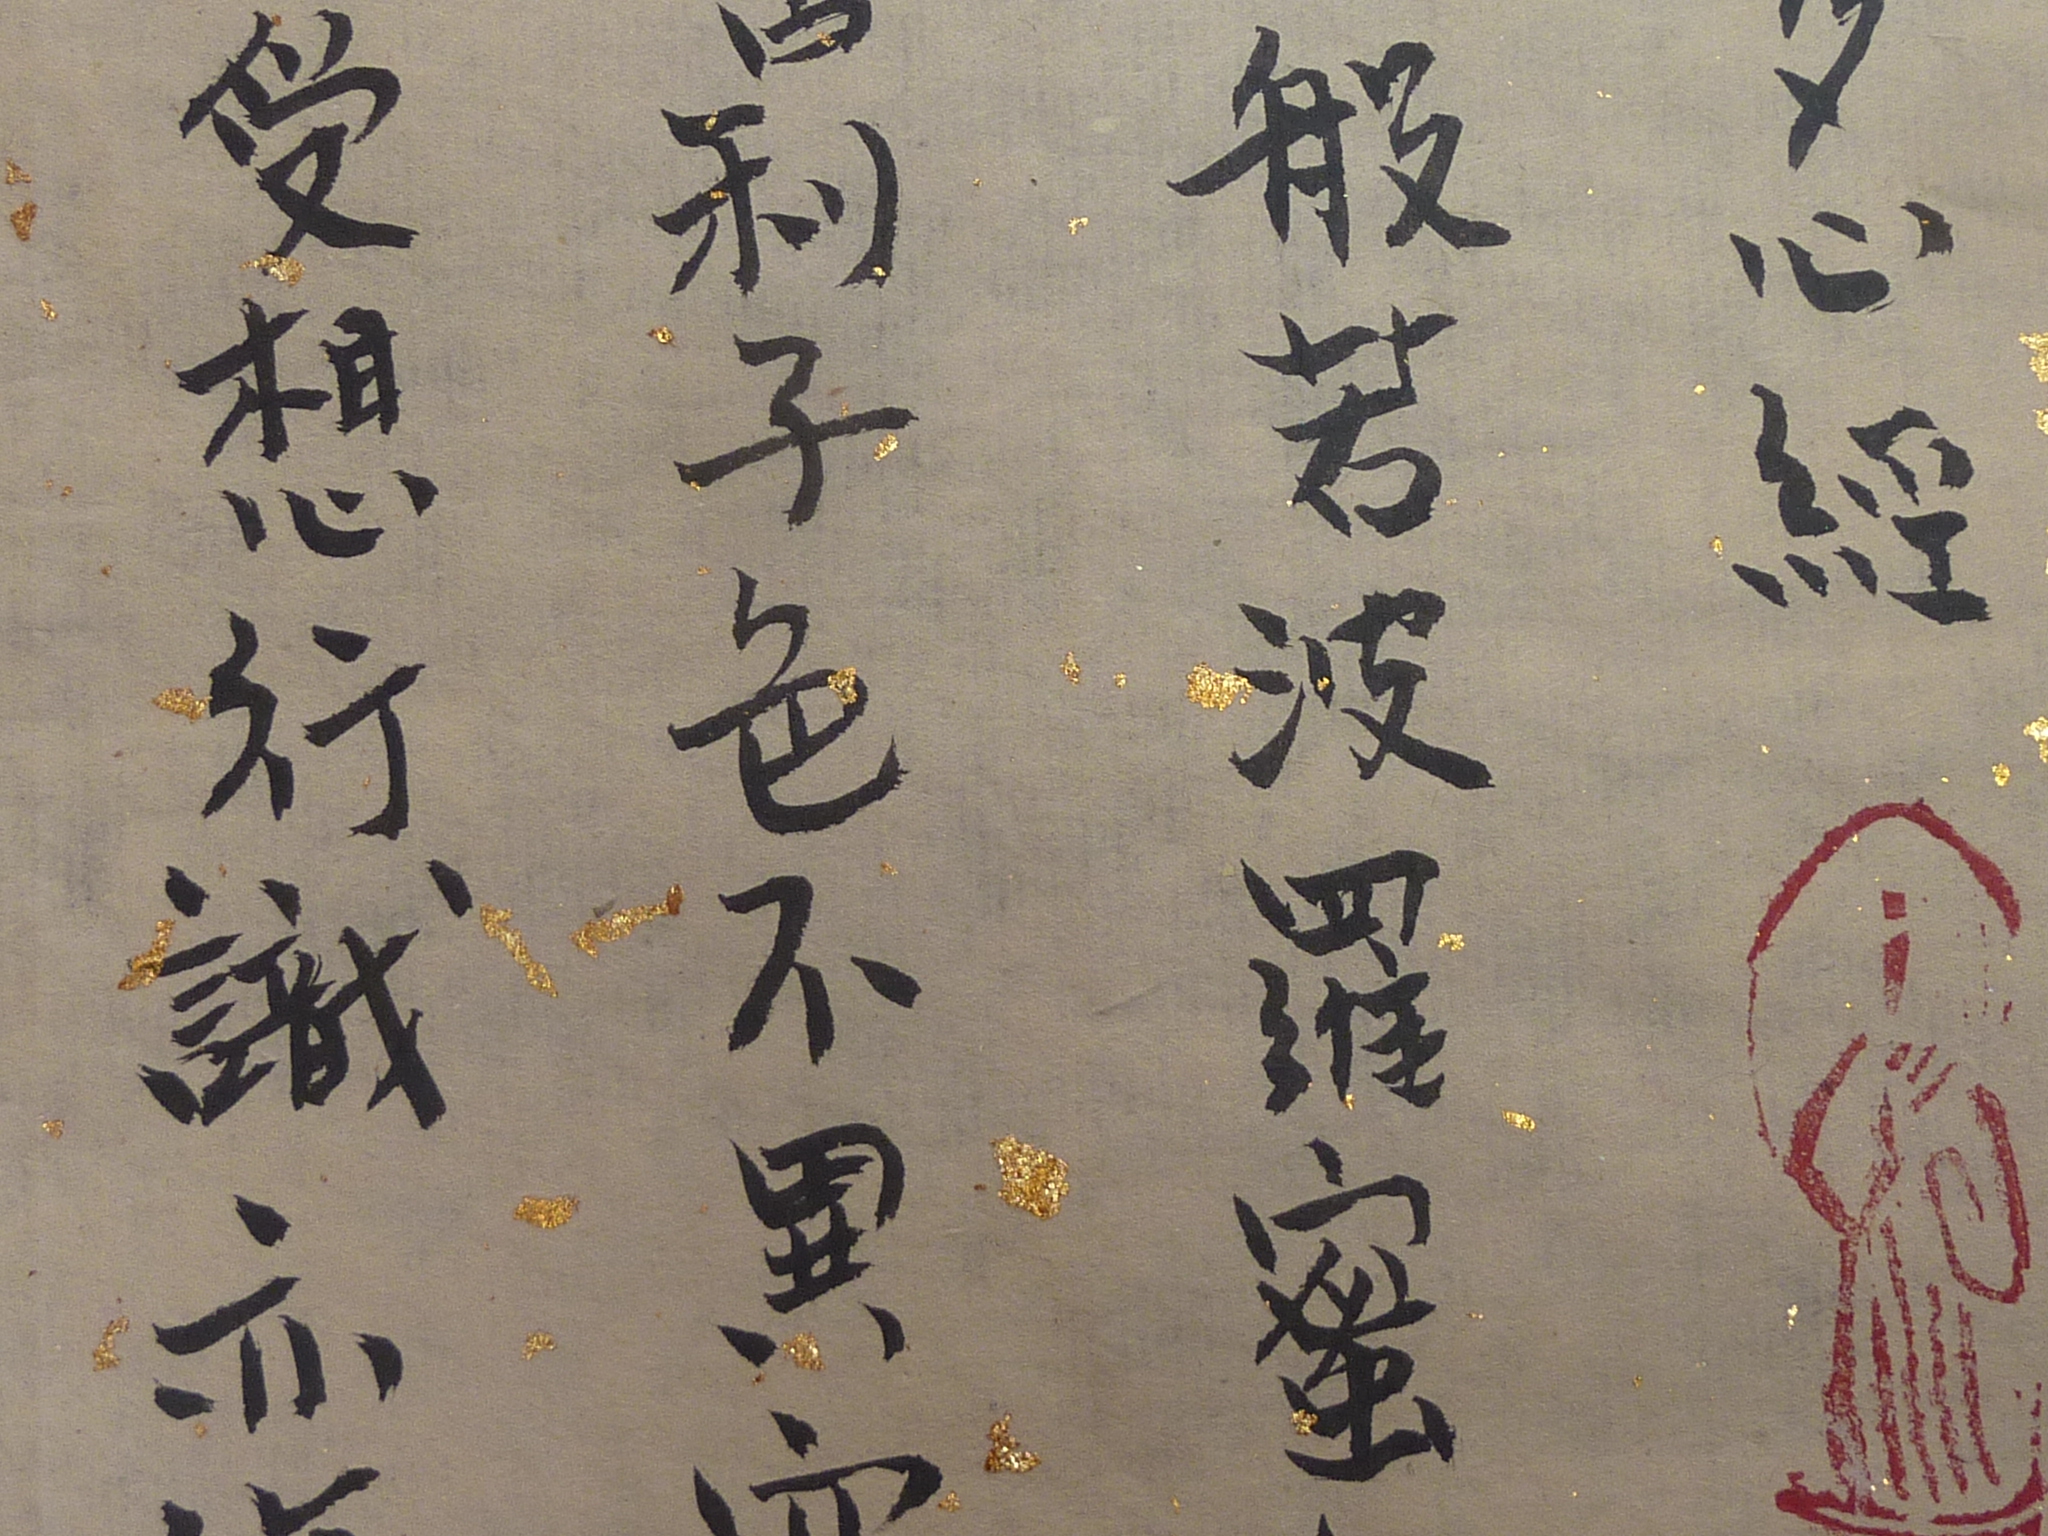 多心經
般若波羅蜜
舍利子色不異空
受想行識亦復